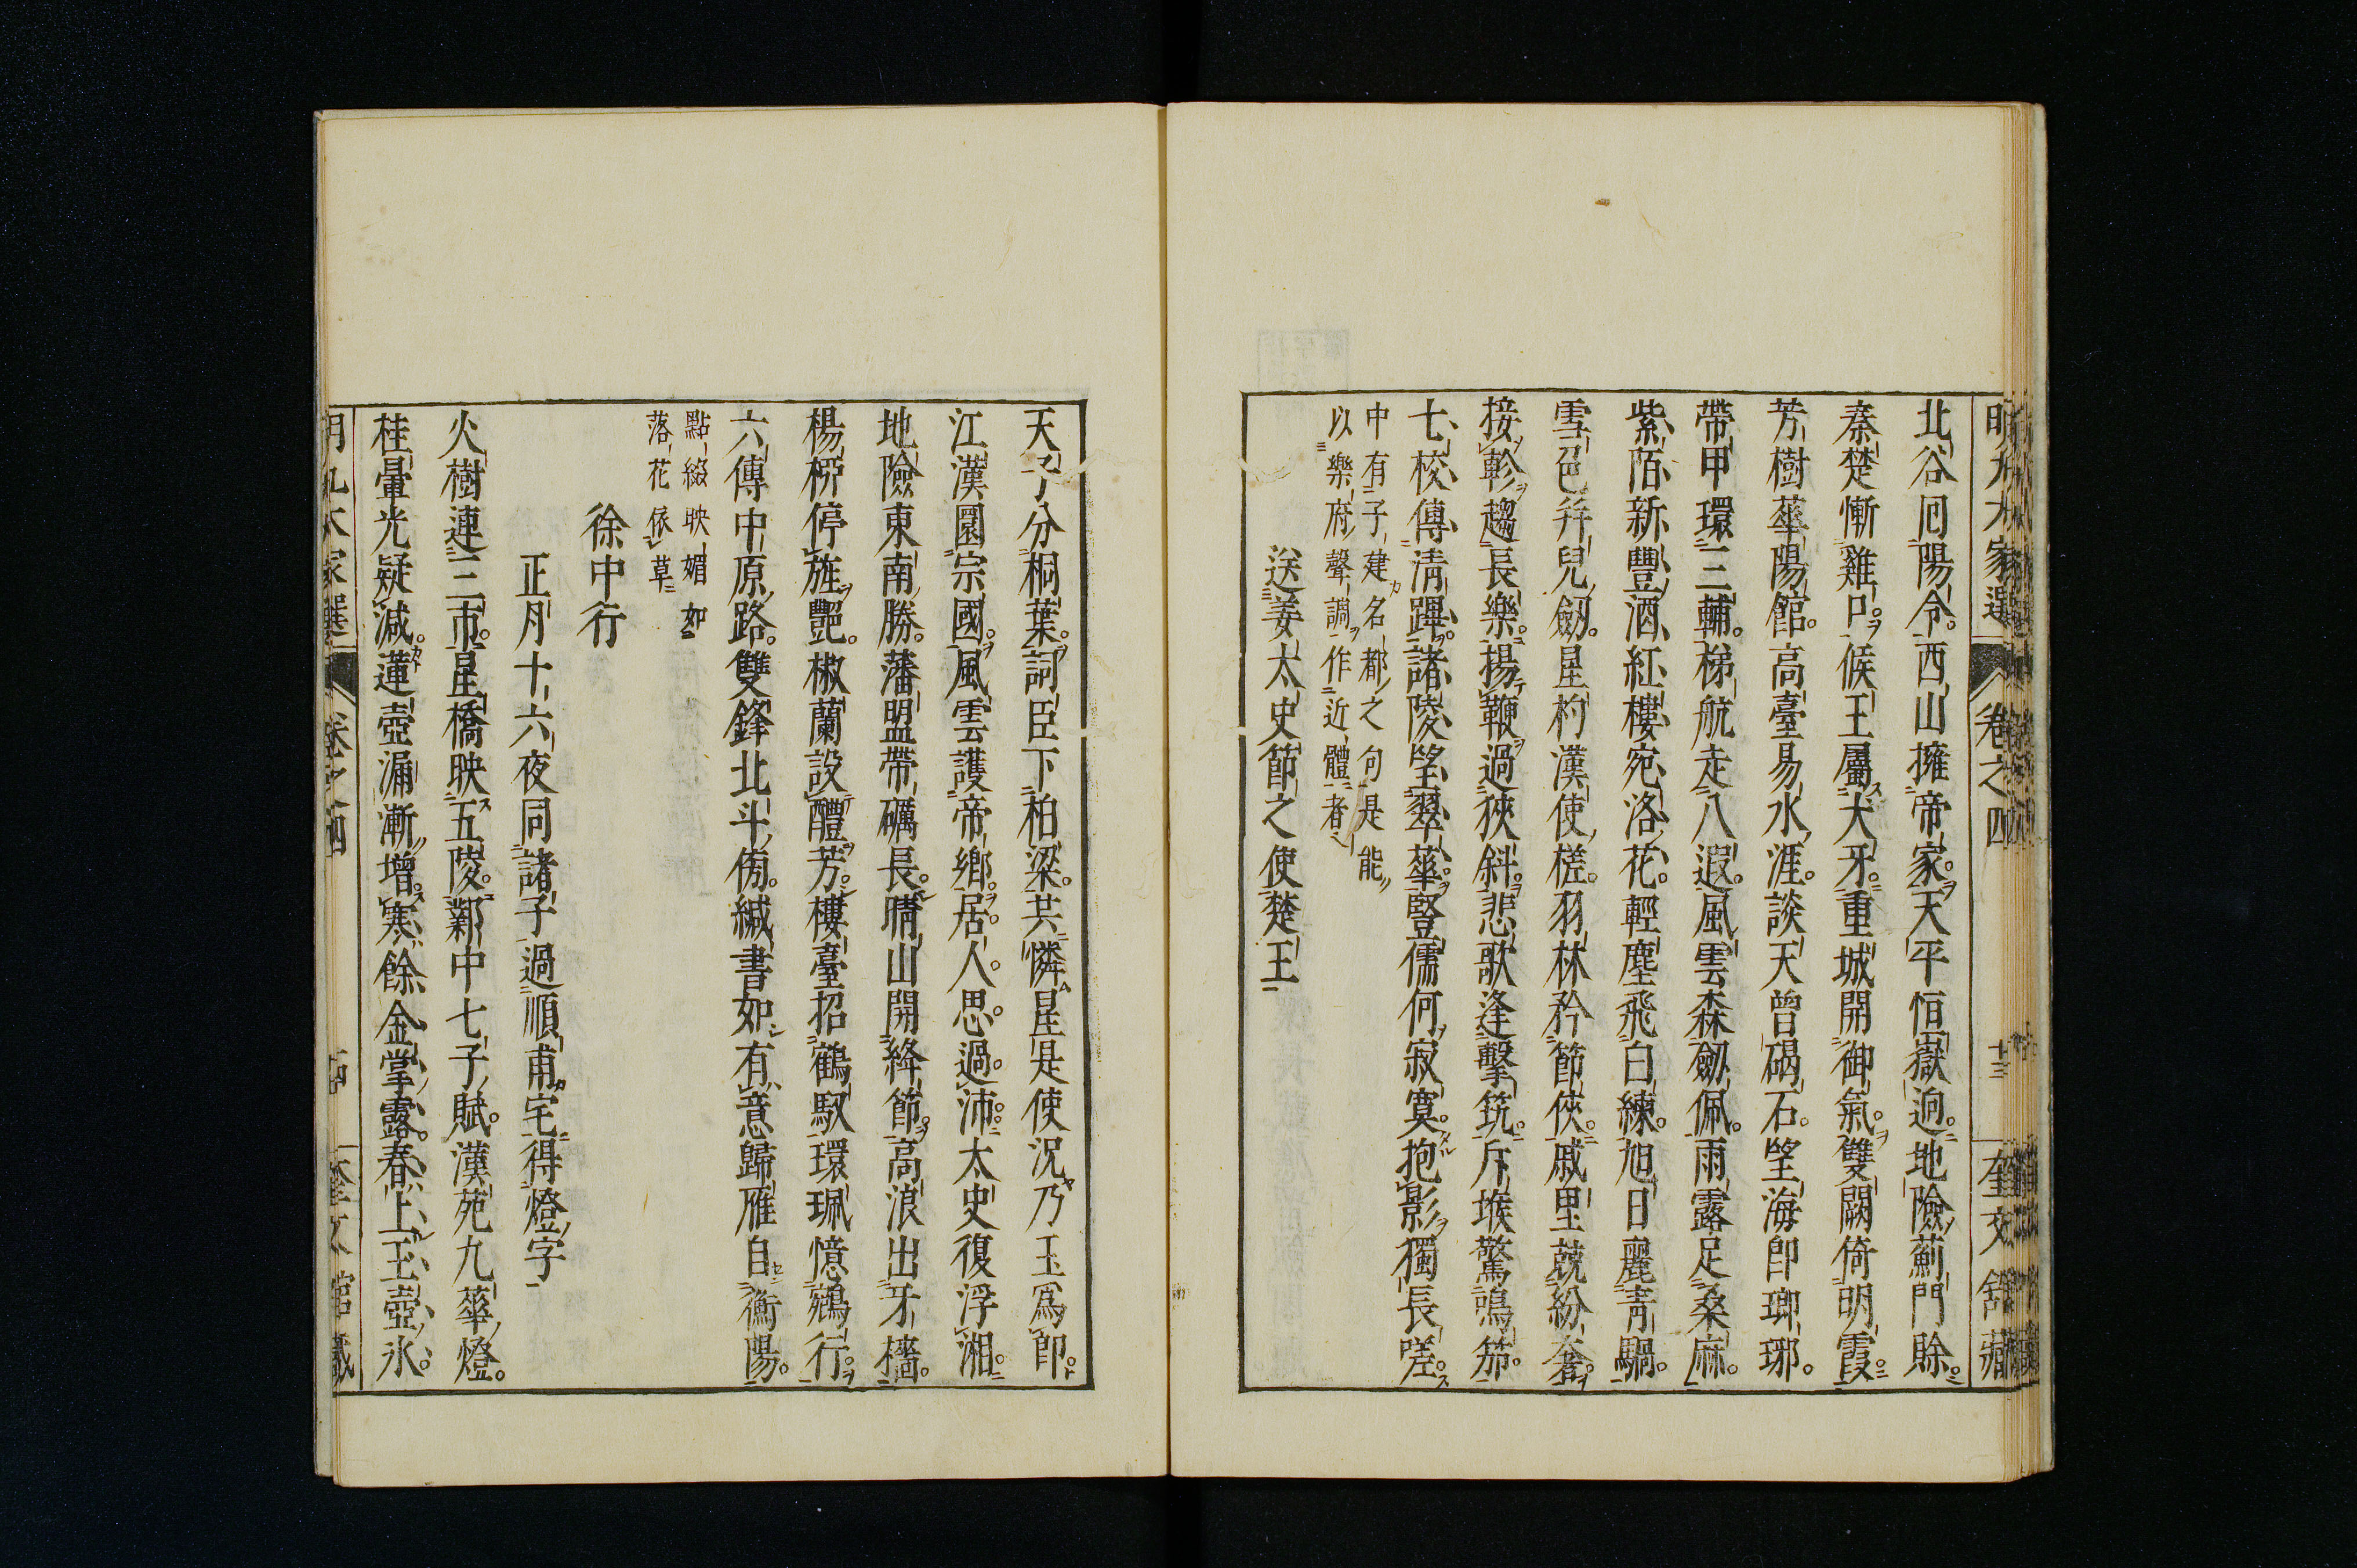 明九大家選 卷之四 十三 奎文館藏
北谷囘陽令西山擁帝家天平恒嶽逈地險薊門賒
秦楚慚雞尸侯王屬犬牙重城開御氣雙闕倚明霞
芳樹華陽館高臺易水涯談天曾碣石望海卽瑯琊
帶甲環三輔梯航走八遐風雲森劒佩雨露足桑麻
紫陌新豐酒紅樓宛洛花輕塵飛白練旭日麗靑騧
雪色幷兒劒星杓漢使槎羽林矜節俠戚里競紛奢
接軫趨長樂揚鞭過狹斜悲歌逢擊筑斥堠驚鳴笳
七校傳淸蹕諸陵望翠華豎儒何寂寞抱影獨長嗟
中有子建名都之句是能
以樂府聲調作近體者
送姜太史節之使楚王
天子分桐葉詞臣下柏梁共憐星是使況乃玉爲卽
江漢圜宗國風雲護帝鄉居人思過沛太史復浮湘
地險東南勝藩盟帶礪長晴山開絳節高浪出牙檣
楊栁停旌艷椒蘭設醴芳樓臺招鶴馭環珮憶鵷行
六傳中原路雙鋒北斗傍緘書如有意歸雁自衡陽
點綴映媚如
落花依草
徐中行
正月十六夜同諸子過順甫宅得燈字
火樹連三市星橋映五陵鄴中七子賦漢苑九華燈
桂暈光疑減蓮壺漏漸增寒餘金掌露春上玉壺氷